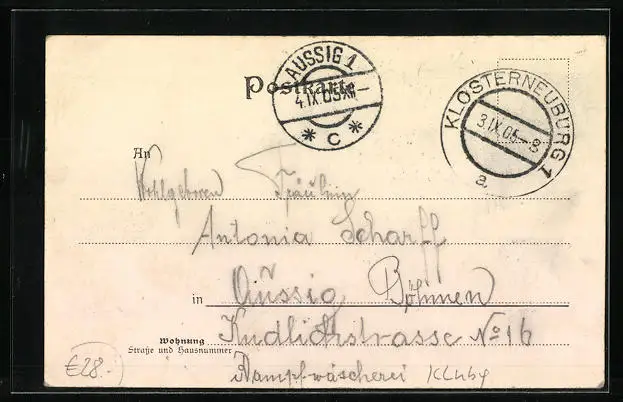 Postkarte
AUSSIG 1
4.IX.05.XII-
* C *
KLOSTERNEUBURG 1
3.IX.05.-8
a
An
Wohlgeboren Fräulein
Antonia Scharff
in Aussig Böhmen
Wohnung
Straße und Hausnummer
Kudlichstrasse No 16
Dampfwäscherei
€28.-